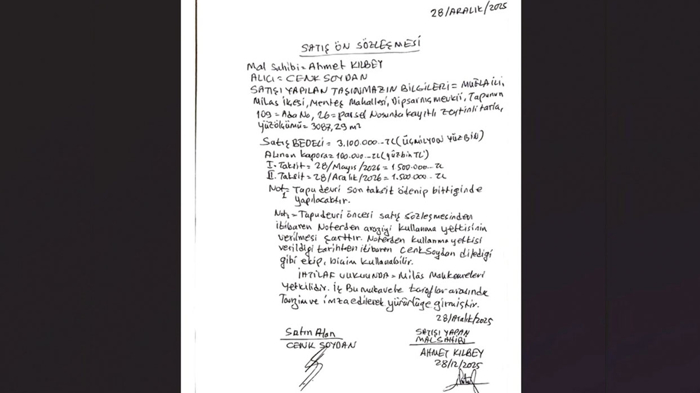 28/ARALIK/2025
SATIŞ ÖN SÖZLEŞMESİ
Mal Sahibi = Ahmet KILBEY
ALICI = CENK SOYDAN
SATIŞI YAPILAN TAŞINMAZIN BİLGİLERİ = MUĞLA İLİ,
Milas ilçesi, Menteş Mahallesi, Dipsarnıç mevkii, Tapunun
109 = Ada No, 26 = parsel Nosunda kayıtlı zeytinli tarla,
yüzölçümü = 3087,29 m²
Satış BEDELİ = 3.100.000.-TL (ÜÇMİLYON YÜZBİN)
Alınan kapora = 100.000.-TL (yüzbin TL)
I. Taksit = 28/Mayıs/2026 = 1.500.000.-TL
II. Taksit = 28/Aralık/2026 = 1.500.000.-TL
Not 1 = Tapu devri son taksit ödenip bittiğinde
yapılacaktır.
Not 2 = Tapu devri öncesi satış sözleşmesinden
itibaren Noterden araziyi kullanma yetkisinin
verilmesi şarttır. Noterden kullanma yetkisi
verildiği tarihten itibaren Cenk Soydan dilediği
gibi ekip, biçim kullanabilir.
İHTİLAF VUKUUNDA = Milas Mahkemeleri
yetkilidir. İş Bu mukavele taraflar arasında
Tanzim ve imza edilerek yürürlüğe girmiştir.
28/Aralık/2025
Satın Alan
CENK SOYDAN
SATIŞI YAPAN
MAL SAHİBİ
AHMET KILBEY
28/12/2025